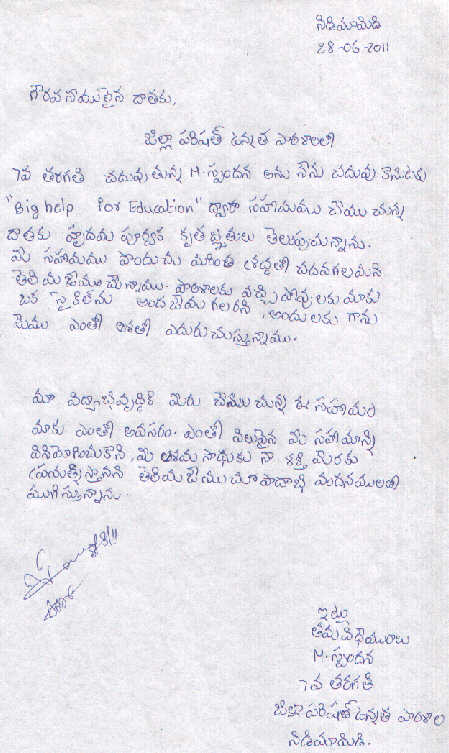 నిడిమామిడి
28-06-2011
గౌరవనీయులైన దాతకు,
జిల్లా పరిషత్ ఉన్నత పాఠశాలలో
7వ తరగతి చదువుతున్న M.స్పందన అను నేను చదువు కొనుటకు
"Big help For Education" ద్వారా సహాయము చేయు చున్న
దాతకు హృదయ పూర్వక కృతజ్ఞతలు తెలుపుచున్నాను.
మీ సహాయము పొందుచు మరింత శ్రద్ధతో చదవగలమని
తెలియజేయు చున్నాము. పాఠశాలకు వచ్చి పోవులకు మాకు
ఒక సైకిల్‌ను అంద చేయ గలరని, అందులకు గాను
మేము ఎంతో ఆశతో ఎదురుచుస్తున్నాము.
మా విద్యాభివృద్ధికి మీరు చేయు చున్న ఈ సహాయం
మాకు ఎంతో అవసరం. ఎంతో విలువైన మీ సహాయాన్ని
వినియోగించుకొని, మీ ఆశయ సాధనకు నా శక్తి మేరకు
ప్రయత్నిస్తానని తెలియజేయుచూ పాదాభి వందనములతో
ముగిస్తున్నాను.
ఇట్లు
తమ విధేయురాలు
M.స్పందన
7వ తరగతి
జిల్లా పరిషత్ ఉన్నత పాఠశాల
నిడిమామిడి.